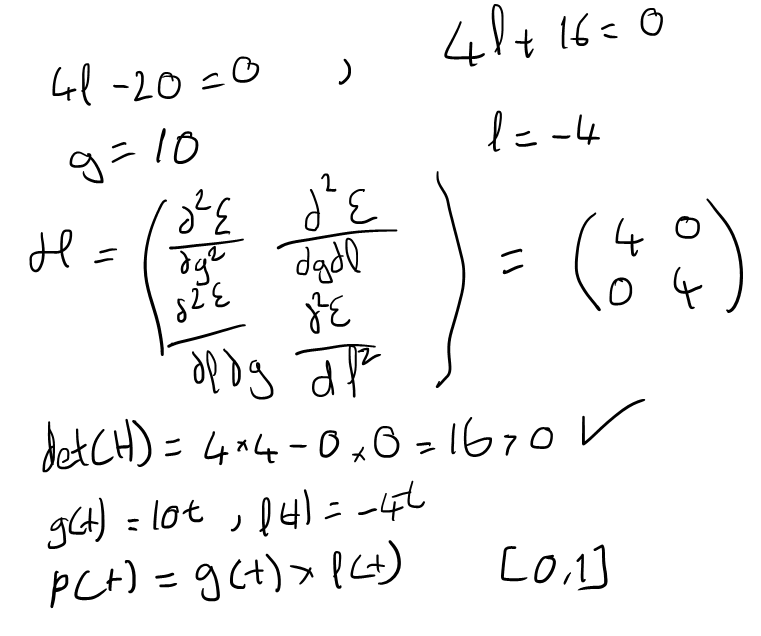 4l - 20 = 0 , 4l + 16 = 0
g = 10 l = -4
H = ( ∂²ε/∂g² ∂²ε/∂g∂l ; ∂²ε/∂l∂g ∂²ε/dl² ) = ( 4 0 ; 0 4 )
det(H) = 4×4 - 0×0 = 16 > 0 ✓
g(t) = 10t , l(t) = -4t
p(t) = g(t) × l(t) [0,1]